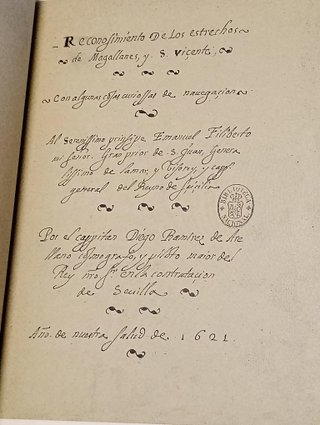 Reconosimiento De Los estrechos
de Magallanes, y S. Viçente,
Con algunas cosas curiossas de navegaçion.
Al Sereníssimo prinsipe Emanuel Filiberto
mi señor. Gran prior de S. Juan, Genera
lissimo de la mar, y Visorey, y capp.
general del Reyno de Siçilia
Por el cappitan Diego Ramirez de Are
llano cosmografo, y piloto maior del
Rey nro. Sr. en la contrataçion
de Sevilla
Año. de nuestra Salud de 1621.
BIBLIOTECA NACIONAL